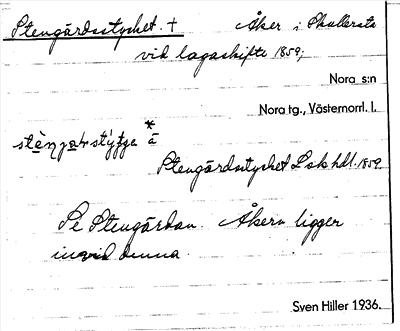 Stengårdsstycket. + Åker i Skullersta
vid lagaskifte 1859;
Nora s:n
Nora tg., Västernorrl. l.
*
å
Stengårdsstycket Lsk hdl. 1859.
Se Stengårdan. Åkern ligger
invid denna.
Sven Hiller 1936.